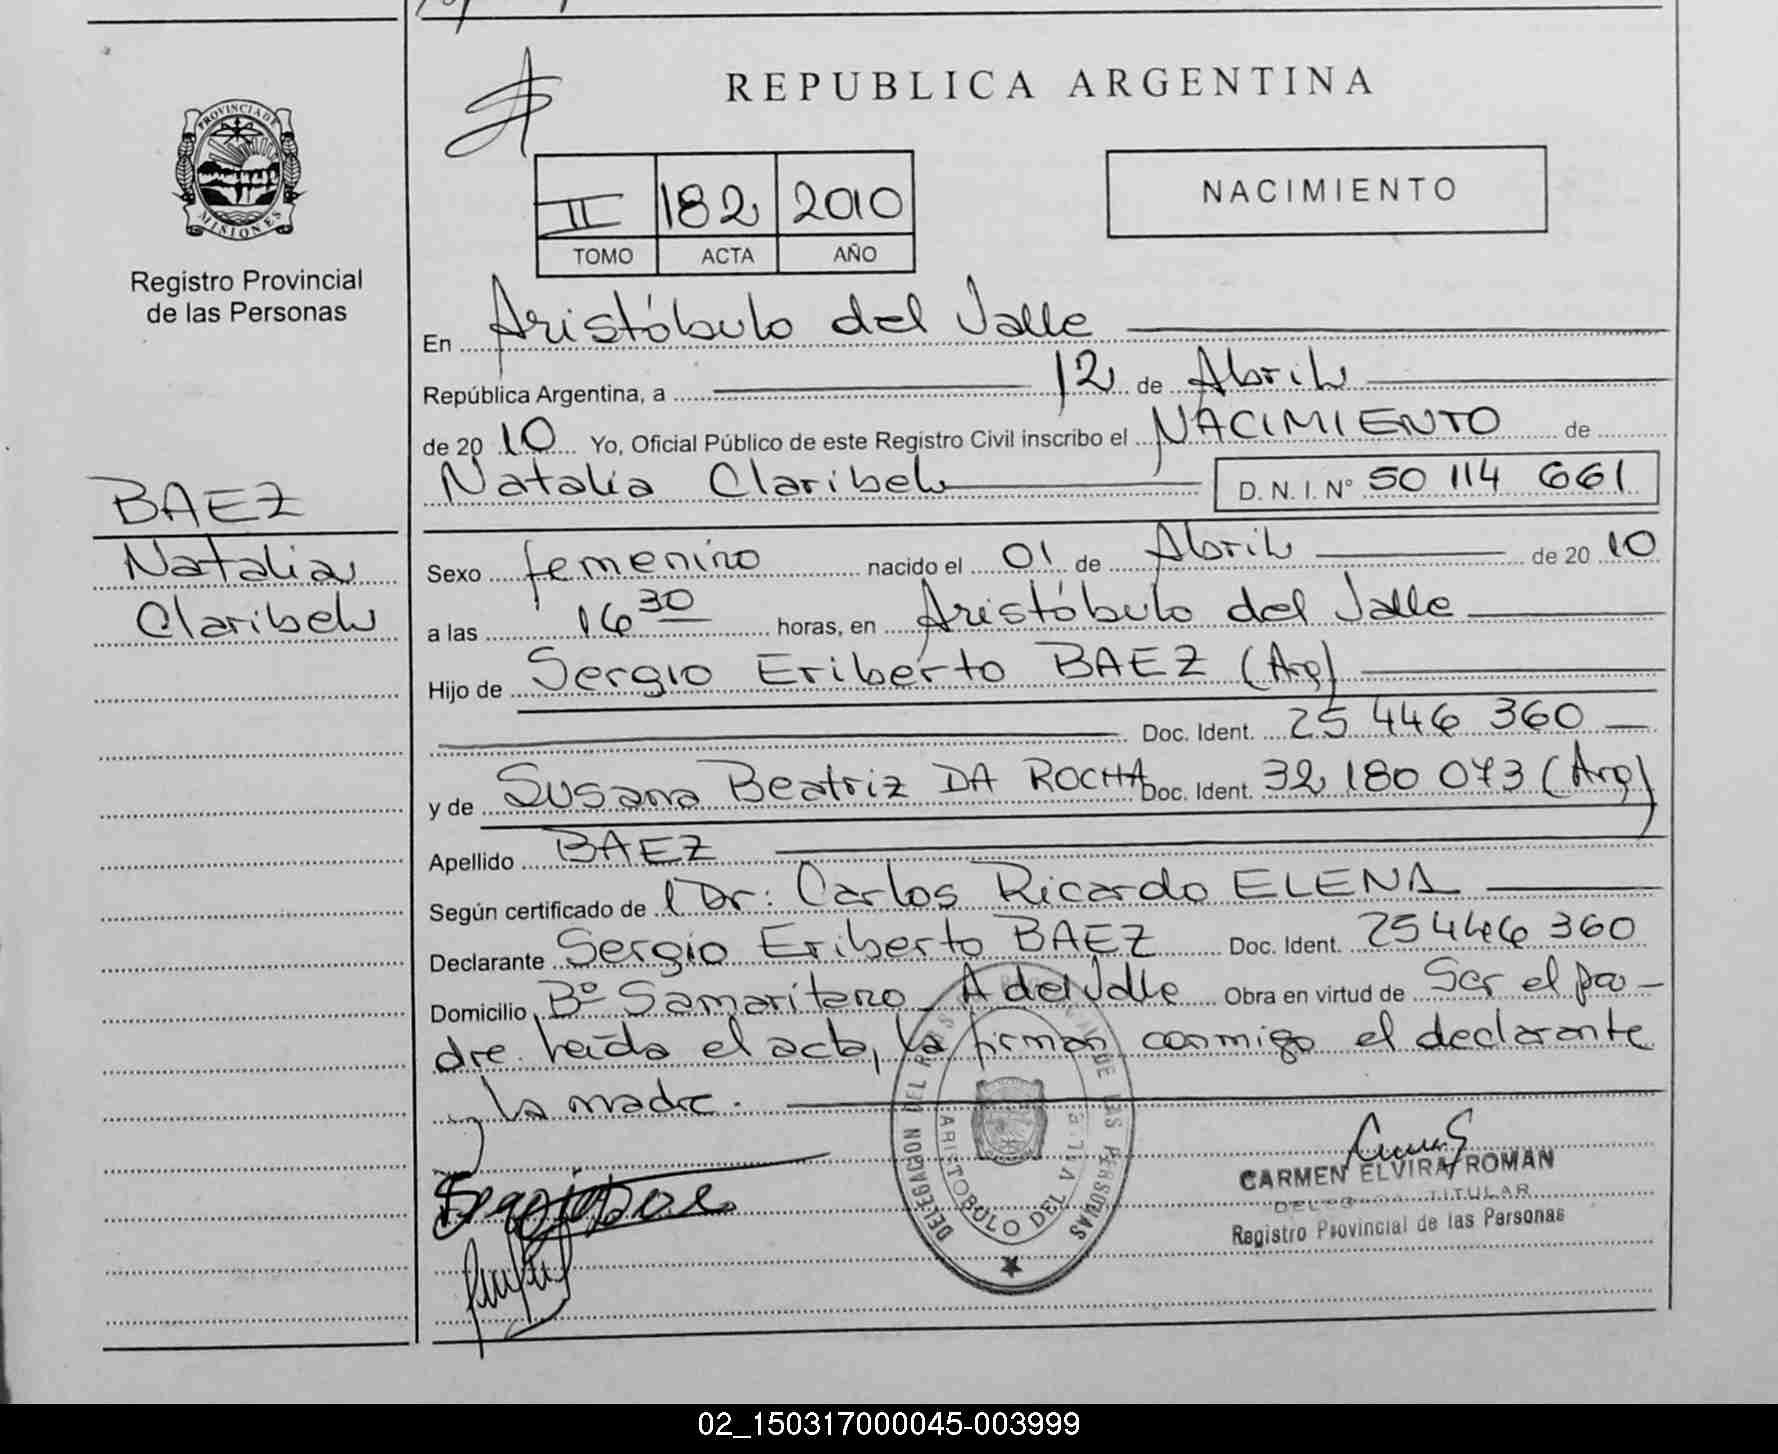 REPUBLICA ARGENTINA
PROVINCIA DE
MISIONES
Registro Provincial
de las Personas
II 182 2010
TOMO ACTA AÑO
NACIMIENTO
En Aristóbulo del Valle
República Argentina, a 12 de Abril
de 20 10 Yo, Oficial Público de este Registro Civil inscribo el NACIMIENTO de
Natalia Claribel D. N. I. N° 50 114 661
BAEZ
Natalia
Claribel
Sexo femenino nacido el 01 de Abril de 20 10
a las 16 30 horas, en Aristóbulo del Valle
Hijo de Sergio Eriberto BAEZ (Arg)
Doc. Ident. 25 446 360
y de Susana Beatriz DA ROCHA Doc. Ident. 32 180 073 (Arg)
Apellido BAEZ
Según certificado de Dr: Carlos Ricardo ELENA
Declarante Sergio Eriberto BAEZ Doc. Ident. 25 446 360
Domicilio Bº Samaritano A del Valle Obra en virtud de Ser el pa-
dre. Leída el acta, la firman conmigo el declarante
y la madre.
DELEGACION DEL DE LAS PERSONAS
ARISTOBULO DEL VALLE
CARMEN ELVIRA ROMAN
DELEGADA TITULAR
Registro Provincial de las Personas
02_150317000045-003999